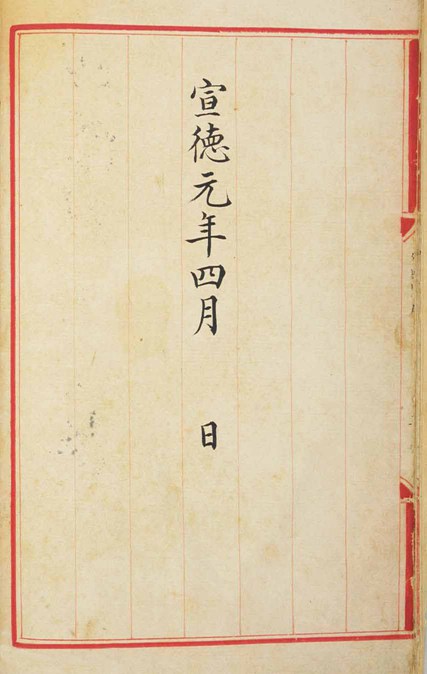 宣徳元年四月　　日